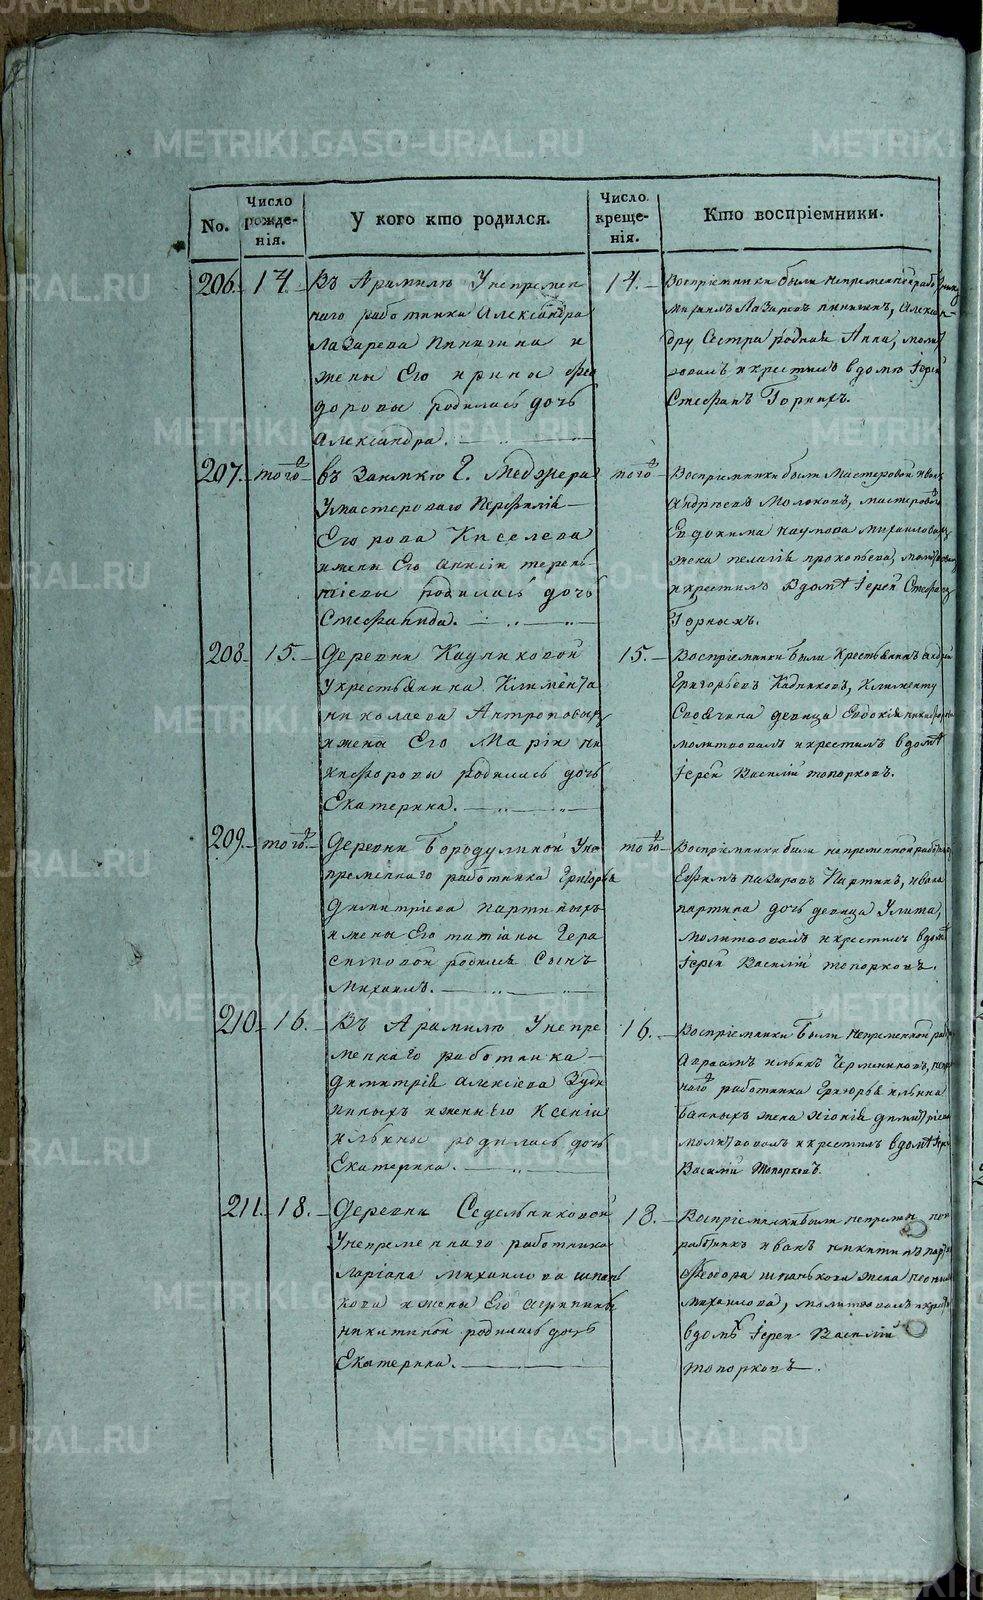 METRIKI.GASO-URAL.RU
No.
Число рожде-нія.
У кого кто родился.
Число креще-нія.
Кто воспріемники.
206.
14.
Въ Арамилѣ Унепремен
наго работника Александра
Лазарева Пинигина и
жены Его Ирины Фео
доровы родилась дочь
Александра.
14.
Воспріемники были непременной работникъ
Лазаревъ Пинигинъ, Алексан-
дру Сестра родная Анна, молит
вовалъ и крестилъ в домѣ Іерей
Стефанъ Горныхъ.
207.
того
въ Заимкѣ Г. Меджера
Умастероваго Перфилія
Егорова Киселева
и жены Его Анисіи терен-
тіевы родилась дочь
Стефанида.
того
Воспріемники были Мастеровой Иванъ
Андреевъ Молоковъ, мастероваго
Евдокима Наумова Михайловых
жена пелагія прокопьева, молитвовалъ
и крестилъ Вдомѣ Іерей Стефанъ
Горныхъ.
208.
15.
Деревни
Укрестьянина Климента
николаева Антроповых
и жены Его Маріи ни
кифоровы родилась дочь
Екатерина.
15.
Воспріемники были Крестьянинъ
Григорьевъ Кадниковъ, Клименту
девица Евдокія
молитвовалъ и крестилъ вдомѣ
Іерей Василій топорковъ.
209.
того
Деревни Бородулиной Уне
пременнаго работника Григорья
Димитріева партиныхъ
и жены Его татіаны Гера
симовой родился Сынъ
Михаилъ.
того
Воспріемники были непременной работникъ
Ефимъ назаровъ Партинъ, ивана
партина дочь девица Улита,
молитвовалъ и крестилъ вдомѣ
Іерей Василій топорковъ.
210
16.
Въ Арамилѣ Унепре
меннаго работника
Димитрія алексіева Зуби
ниныхъ и жены Его Ксеніи
ильины родилась дочь
Екатерина.
16.
Воспріемники были непременной
Аврамъ ильинъ
наго работника Григорья ильина
жена димитріева
молитвовалъ и крестилъ вдомѣ Іерей
Василій топорковъ.
211.
18.
Деревни Седельниковой
Унепременнаго работника
Ларіона Михайлова шпань
кова и жены Его агрипины
никитиной родилась дочь
Екатерина.
18.
Воспріемники были непремен ной
работникъ иванъ никитинъ
Феодора шпанькова жена
михайлова, молитвовалъ и крестилъ
вдомѣ Іерей Василій
топорковъ.